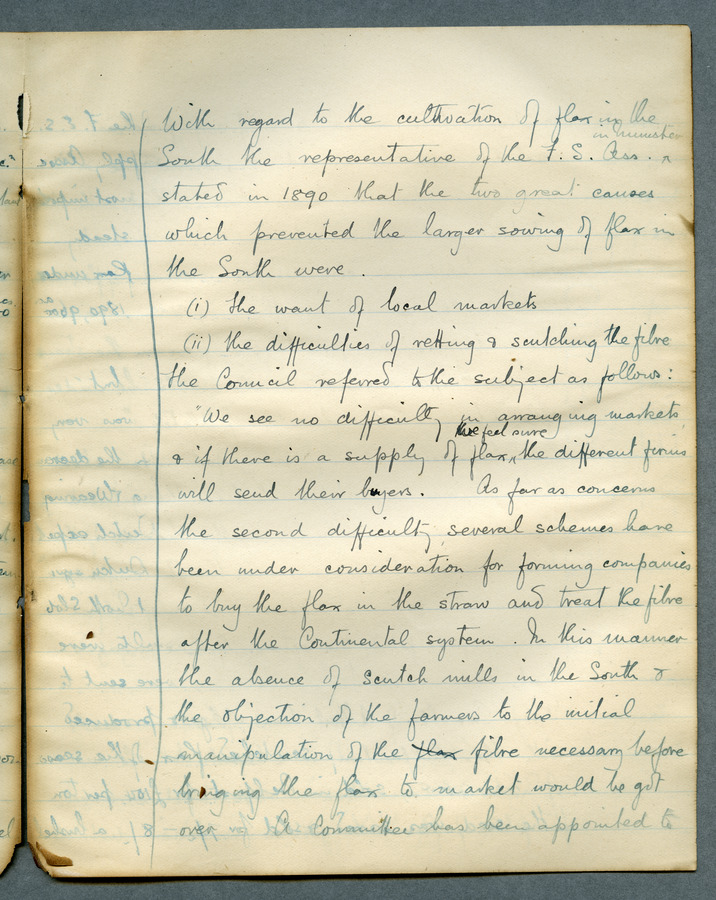 With regard to the cultivation of flax in the
in Munster
South the representative of the F. S. Ass. ^
stated in 1890 that the two great causes
which prevented the larger sowing of flax in
the South were.
(i) the want of local markets
(ii) the difficulties of retting & scutching the fibre
the Council referred to the subject as follows:
"We see no difficulty in arranging markets
we feel sure
& if there is a supply of flax ^ the different firms
will send their buyers. As far as concerns
the second difficulty, several schemes have
been under consideration for forming companies
to buy the flax in the straw and treat the fibre
after the Continental system. In this manner
the absence of scutch mills in the South &
the objection of the farmers to the initial
manipulation of the flax fibre necessary before
bringing the flax to market would be got
over. A Committee has been appointed to